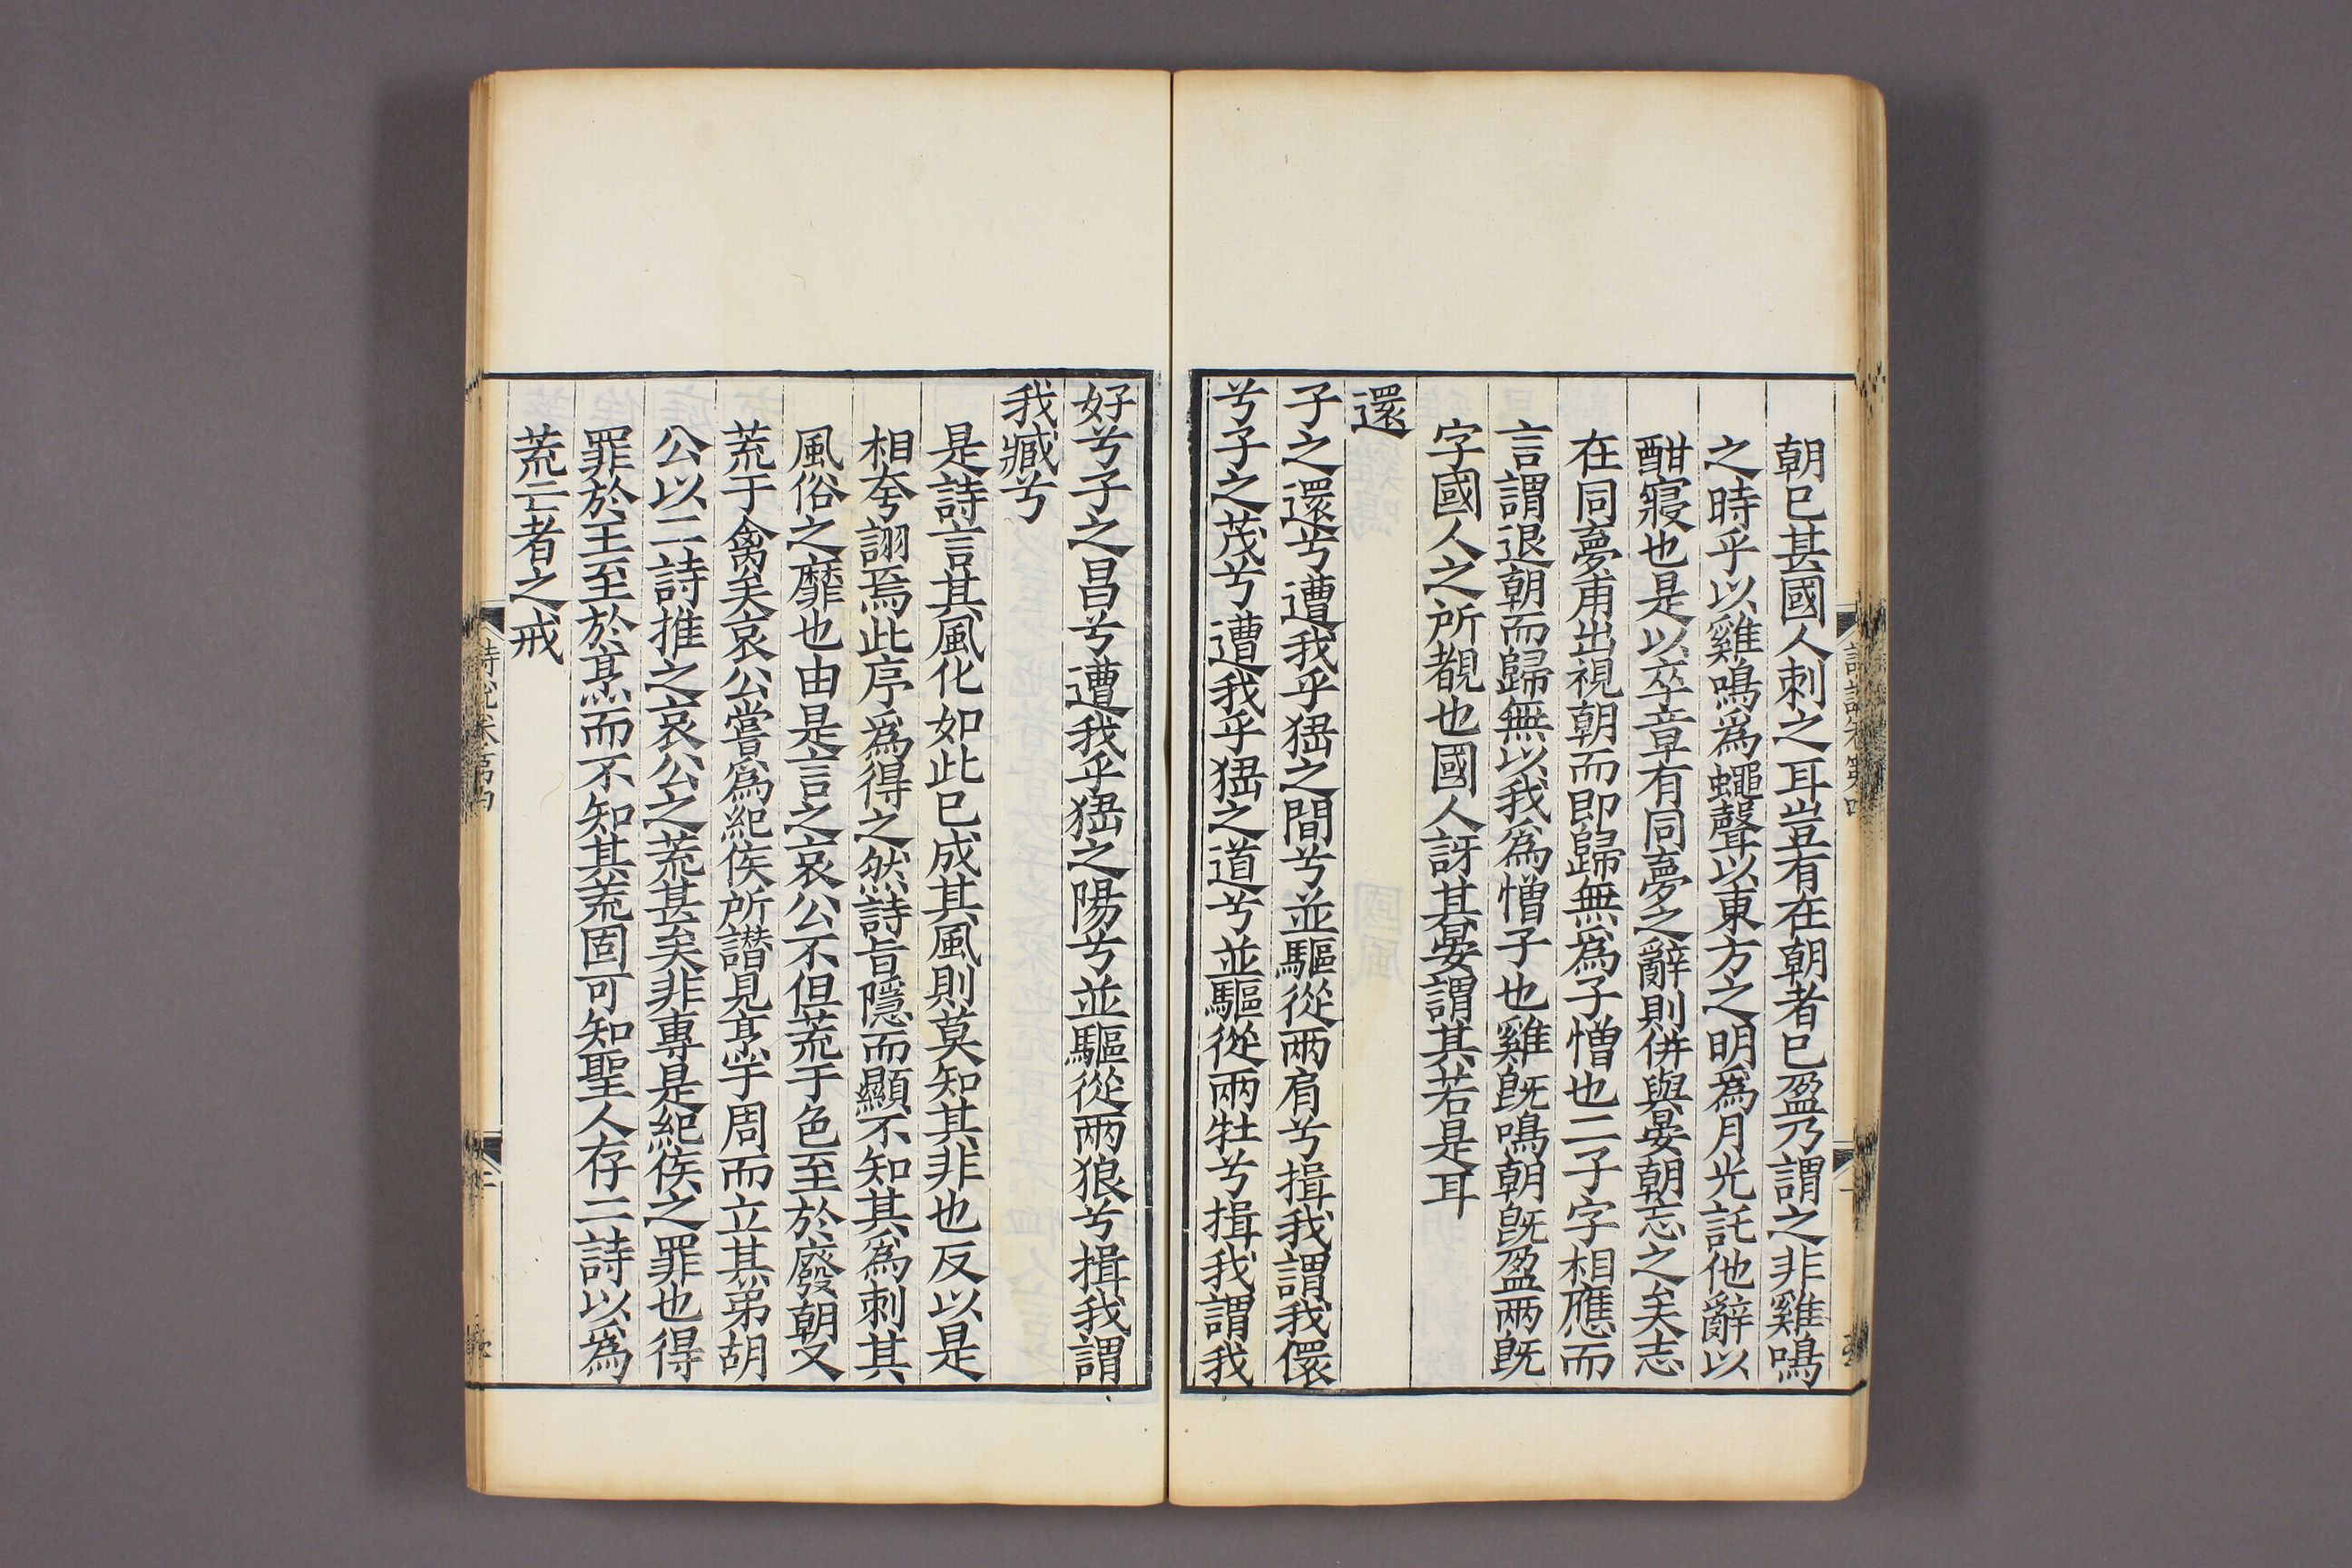 朝已甚國人刺之耳豈有在朝者已盈乃謂之非雞鳴
之時乎以雞鳴爲蠅聲以東方之明爲月光託他辭以
酣寢也是以卒章有同夢之辭則併與晏朝忘之矣志
在同夢甫出視朝而即歸無爲子憎也二子字相應而
言謂退朝而歸無以我爲憎子也雞旣鳴朝旣盈兩旣
字國人之所覩也國人訝其晏謂其若是耳
還
子之還兮遭我乎峱之間兮並驅從两肩兮揖我謂我儇
兮子之茂兮遭我乎峱之道兮並驅從兩牡兮揖我謂我
好兮子之昌兮遭我乎峱之陽兮並驅從两狼兮揖我謂
我臧兮
是詩言其風化如此已成其風則莫知其非也反以是
相夸詡焉此序爲得之然詩旨隱而顯不知其爲刺其
風俗之靡也由是言之哀公不但荒于色至於廢朝又
荒于禽矣哀公嘗爲紀侯所譖見烹于周而立其弟胡
公以二詩推之哀公之荒甚矣非專是紀侯之罪也得
罪於王至於烹而不知其荒固可知聖人存二詩以爲
荒亡者之戒
詩說卷第四
二